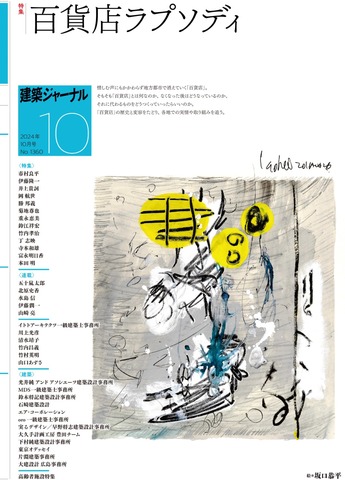 特集
百貨店ラプソディ
惜しむ声にもかかわらず地方都市で消えていく「百貨店」。
そもそも「百貨店」とは何なのか、なくなった後はどうなっているのか、
それに代わるものをどうつくっていったらいいのか。
「百貨店」の歴史と変容をたどり、各地での実情や取り組みを追う。
建築ジャーナル
2024年
10月号
No.1360
10
〈特集〉
春村良平
伊藤隆一
井上貴詞
岡 航世
勝 邦義
菊地尊也
重永恵美
鈴江祥宏
竹内孝治
丁 志映
寺本和雄
富永明日香
本田 明
〈連載〉
五十嵐太郎
北原史香
水島 信
伊藤潤一
山崎 亮
イトトアーキテクツ一級建築士事務所
川上光彦
清水靖子
竹内昌義
竹村英明
山口あずさ
〈建築〉
光井純 アンド アソシエーツ建築設計事務所
MDS一級建築士事務所
鈴木将記建築設計事務所
石崎建築設計
エア・コーポレーション
oen一級建築士事務所
実るデザイン/早野将志建築設計事務所
大久手計画工房 豊田チーム
下村純建築設計事務所
東京オデッセイ
片淵建築事務所
大建設計 広島事務所
高齢者施設特集
絵＝坂口恭平